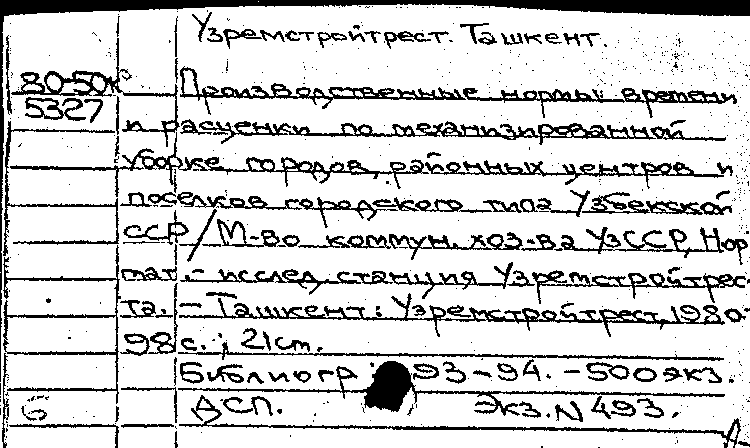 Узремстройтрест. Ташкент.
80-50к
5327
Производственные нормы времени
и расценки по механизированной
уборке городов, районных центров и
поселков городского типа Узбекской
ССР / М-во коммун. хоз-ва УзССР, Нор
мат.- исслед. станция Узремстройтрес
та. – Ташкент: Узремстройтрест, 1980.-
98 с.; 21 cm.
Библиогр.: 93-94. - 500 экз.
ДСП. Экз. N 493.
б